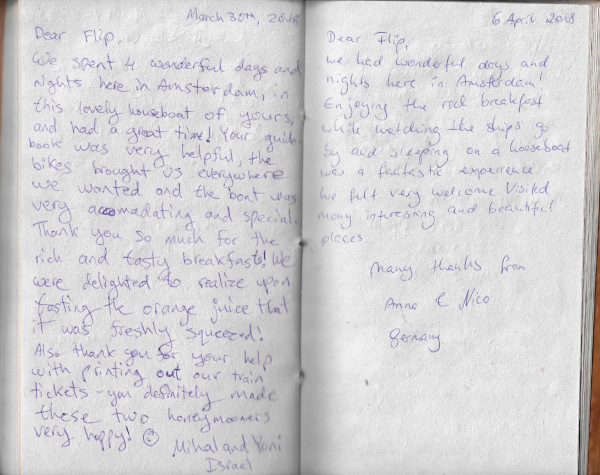 March 30th, 2018
Dear Flip,
We spent 4 wonderful days and
nights here in Amsterdam, in
this lovely houseboat of yours,
and had a great time! Your guide
book was very helpful, the
bikes brought us everywhere
we wanted and the boat was
very accomadating and special.
Thank you so much for the
rich and tasty breakfasts! We
were delighted to realize upon
tasting the orange juice that
it was freshly squeezed!
Also thank you for your help
with printing out our train
tickets - you definitely made
these two honeymooners
very happy! ☺
Mihal and Yoni
Israel
6 April 2018
Dear Flip,
we had wonderful days and
nights here in Amsterdam!
Enjoying the rich breakfast
while watching the ships go
by and sleeping on a houseboat
was a fantastic experience.
We felt very welcome. Visited
many interesting and beautiful
places
many thanks from
Anne & Nico
Germany